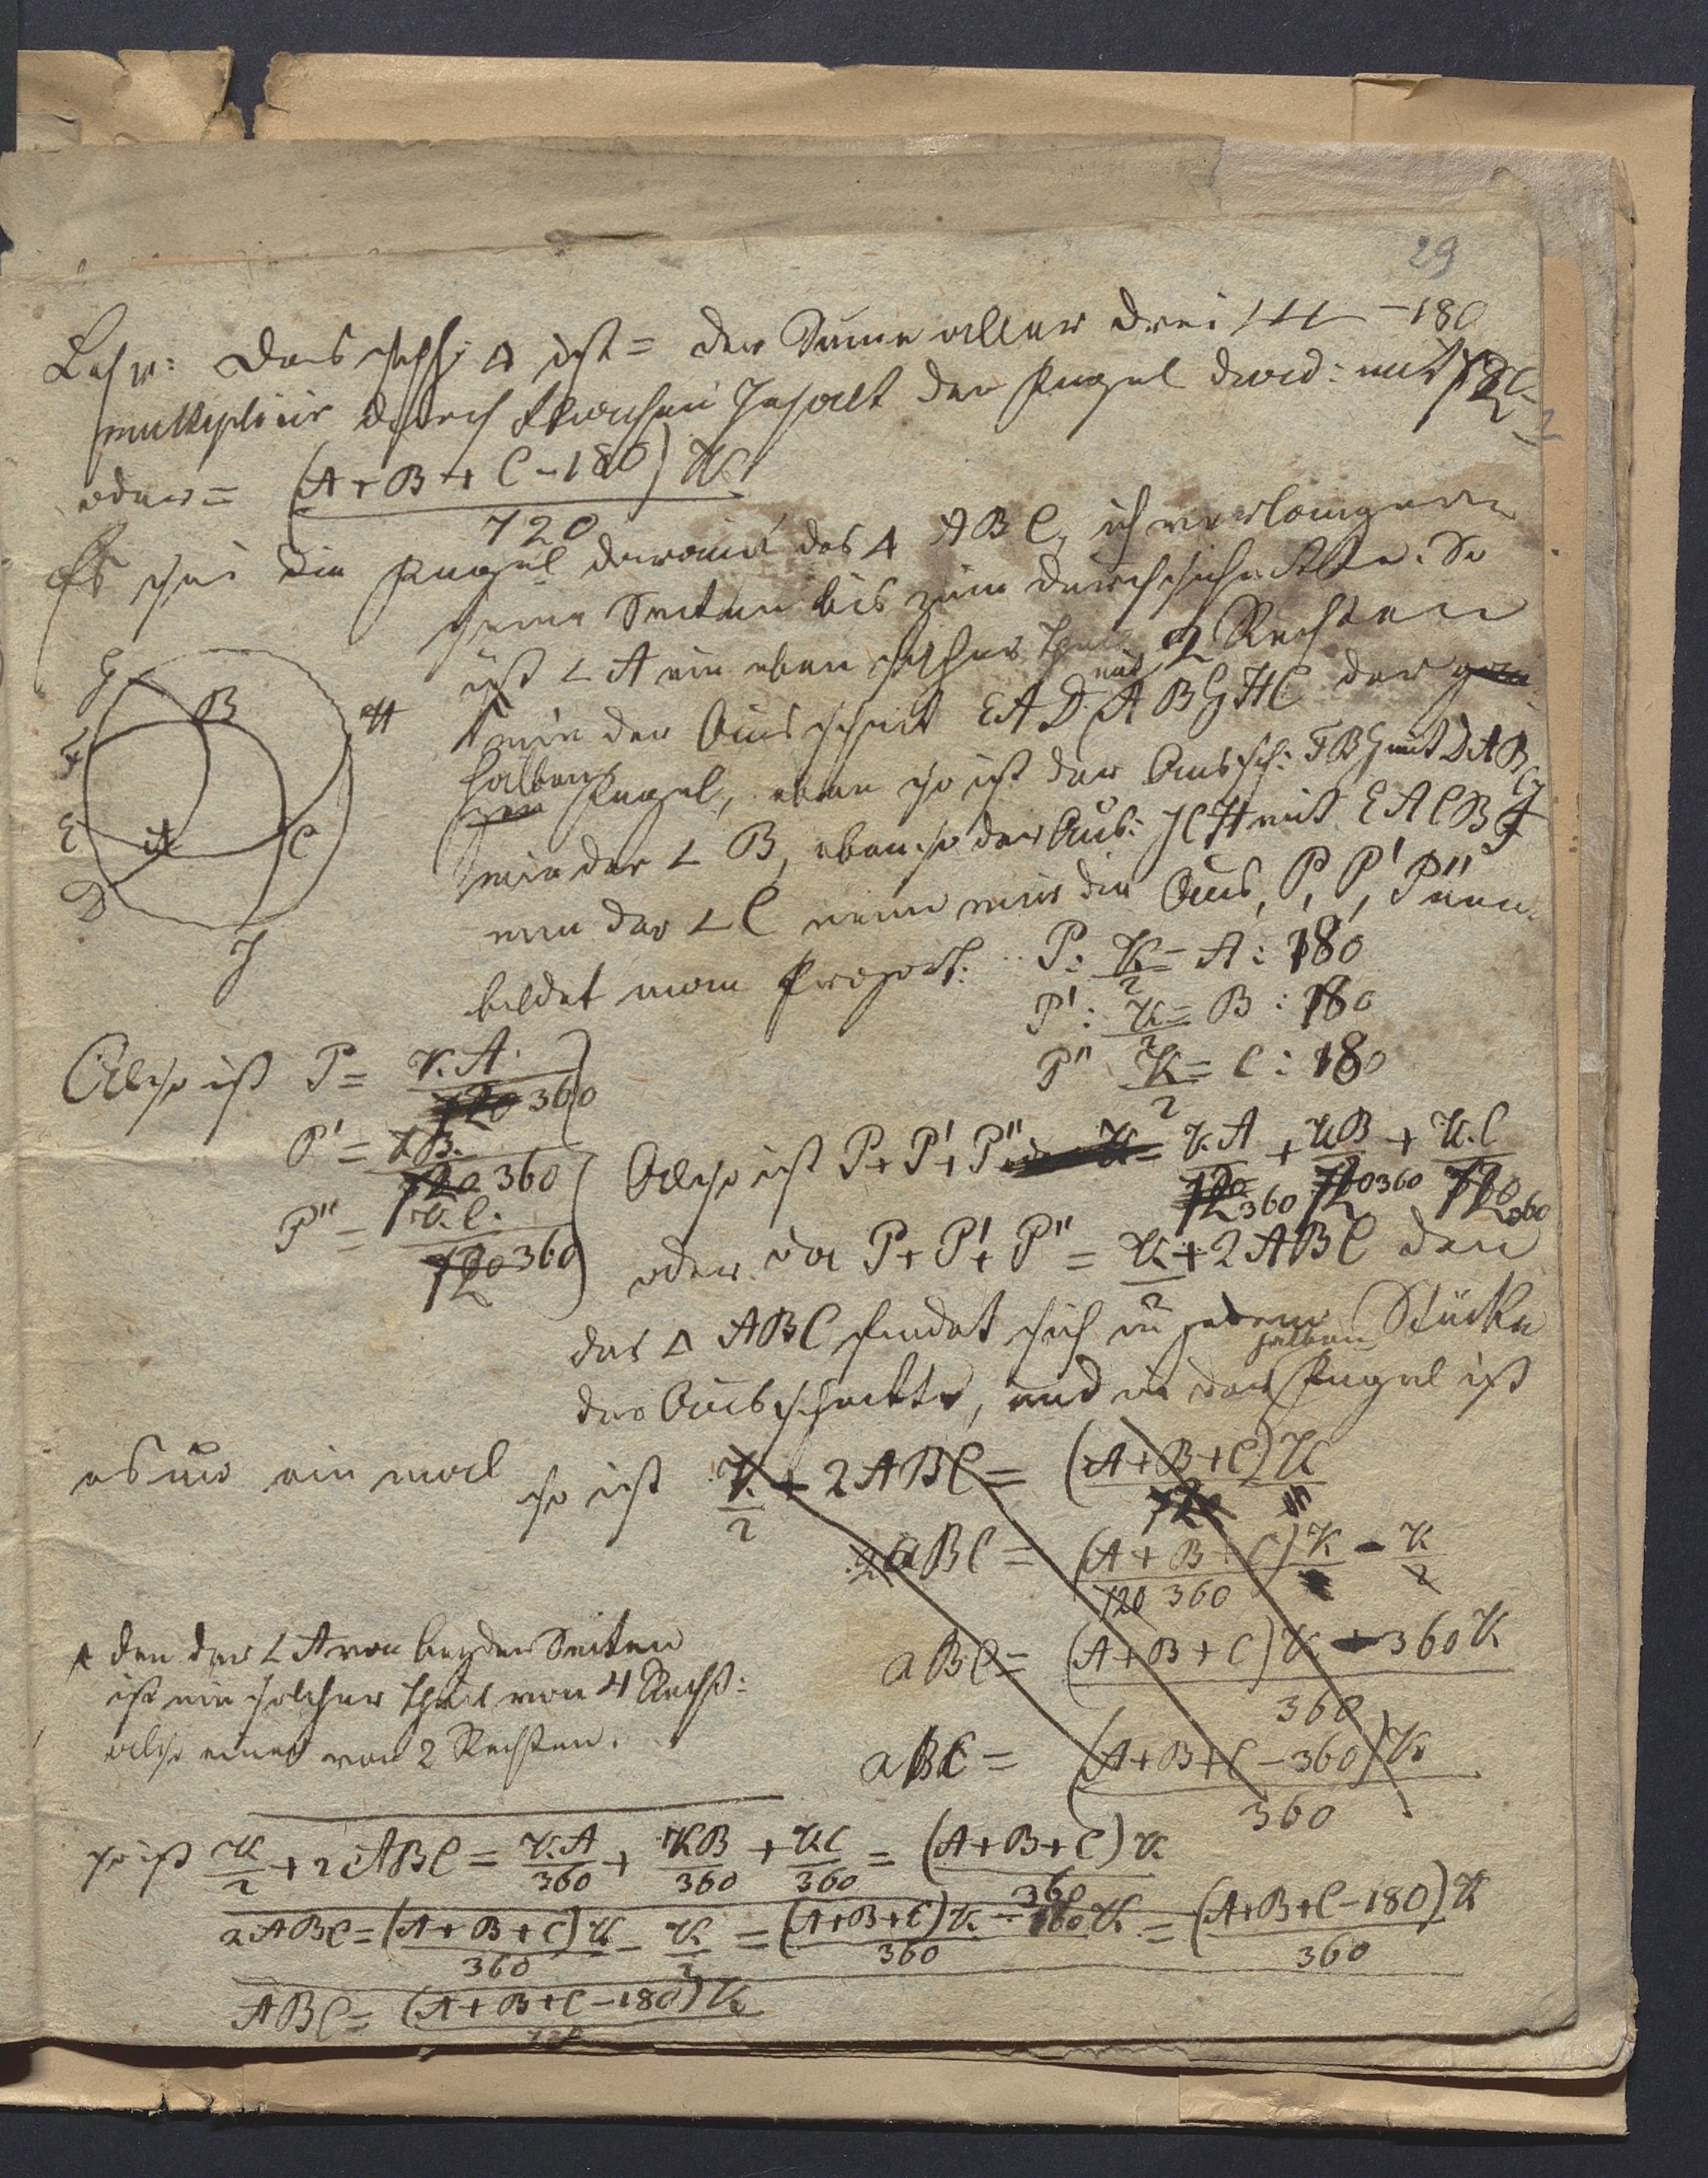 29
Lehr: Das sph: Δ ist = der Summe aller drei ∠∠∠ −180
multiplicir durch Flächen Inhalt der Kugel divid: mit 720
oder = (A+B+C−180)K
720
Es sei die Kugel daraus das Δ ABC, ich verlängere
seine Seiten bis zum Durchschnitte. So
ist ∠A ein eben solcher Theil von 2 Rechten
wie der Ausschnit EAD mit ABGHC der
halben Kugel, eben so ist der Aussch: FBG mit DAB
wie der ∠ B, eben so der Aus: JCH mit EACBF
nun der ∠C nenn wir die Aus, P, P', P"
bildet man Proport: P: K/2 = A: 180
P': K/2 = B: 180
P" K/2 = C: 180
G
B
H
F
E
A
C
D
J
Also ist P = K.A
720 360
P' = KB.
720 360
P" = K.C.
720 360
Also ist P+P'+P" = KA/720 360 + KB/720 360 + K.C/720 360
oder da P+P'+P" = K/2 + 2ABC den
das Δ ABC findet sich in jedem Stücke
des Ausschnitts, und in der halben Kugel ist
es nur ein mal so ist K/2 + 2ABC = (A+B+C)K
720
2aBC = (A+B+C)K/720 360 − K/2
aBC = (A+B+C)K − 360K
360
aBC = (A+B+C−360)K
360
den der ∠A von beyden Seiten
ist ein solcher Theil von 4 Recht:
also einer von 2 Rechten.
so ist K/2 + 2ABC = KA/360 + KB/360 + KC/360 = (A+B+C)K/360
2ABC = (A+B+C)K/360 − K/2 = (A+B+C)K − 180K/360 = (A+B+C−180)K/360
ABC = (A+B+C−180)K
720